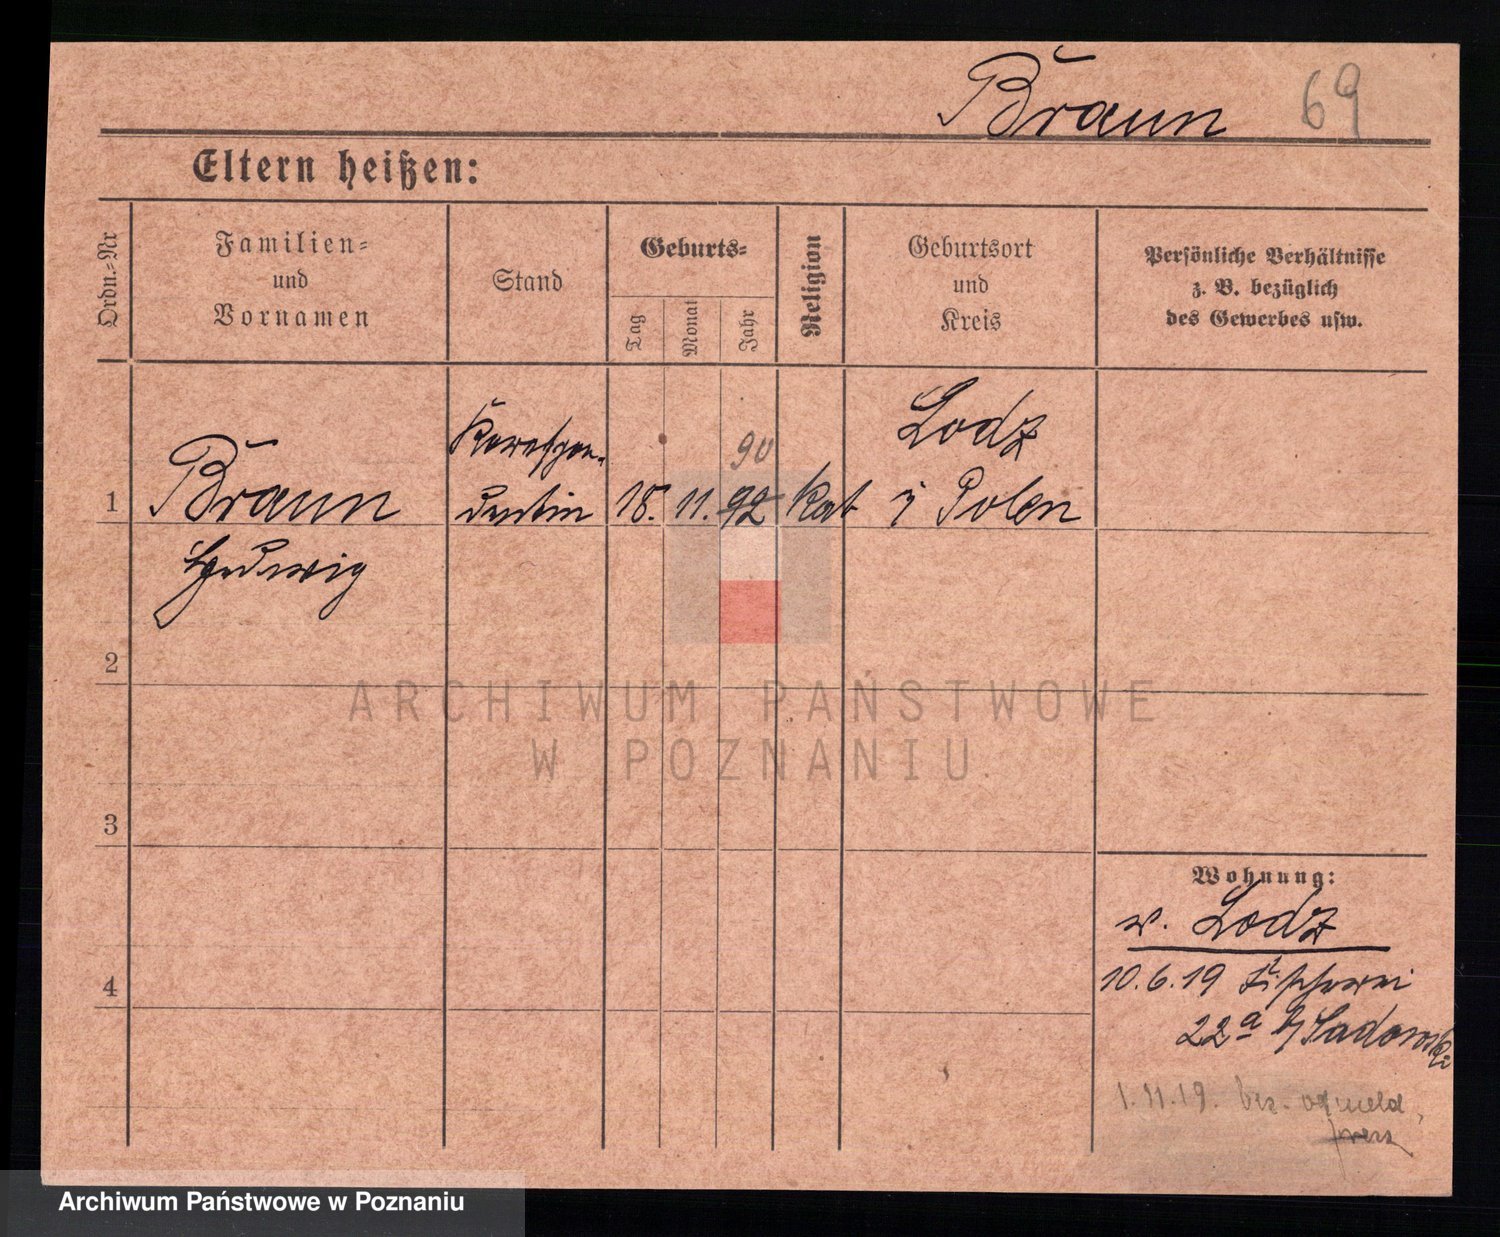 Braun 69
Eltern heißen:
Ordn.-Nr
Familien-
und
Vornamen
Stand
Geburts-
Tag
Monat
Jahr
Religion
Geburtsort
und
Kreis
Persönliche Verhältnisse
z. B. bezüglich
des Gewerbes usw.
1
Braun
Hedwig
Korrespon-
dentin
18. 11. 92
90
Kat
Lodz
i Polen
2
3
4
Wohnung:
v. Lodz
10.6.19 Fischerei
22a b/Sadowski
1.11.19. bez.
ARCHIWUM PAŃSTWOWE
W POZNANIU
Archiwum Państwowe w Poznaniu